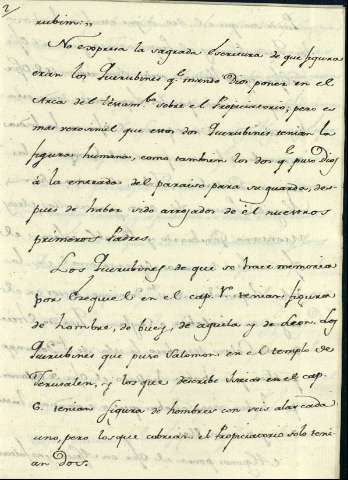 2/
rubim;,
No expresa la sagrada Escritura de que figura
eran los Querubines qe. mando Dios poner en el
Arca del Testamto. sobre el Propiciatorio, pero es
mas verosimil que estos dos Querubines tenian la
figura humana, como tambien los dos qe. puso Dios
á la entrada del paraiso para su guarda, des-
pues de haber sido arrojados de él nuestros
primeros Padres.
Los Querubines de que se hace memoria
por Ezequiel en el cap. tenian figura
de hombre, de buey, de aguila y de Leon. Los
Querubines que puso Salomon en el templo de
Jerusalen, y los que describe Isaias en el cap.
6. tenian figura de hombres con seis alas cada
uno, pero los que cubrian el Propiciatorio solo teni-
an dos.